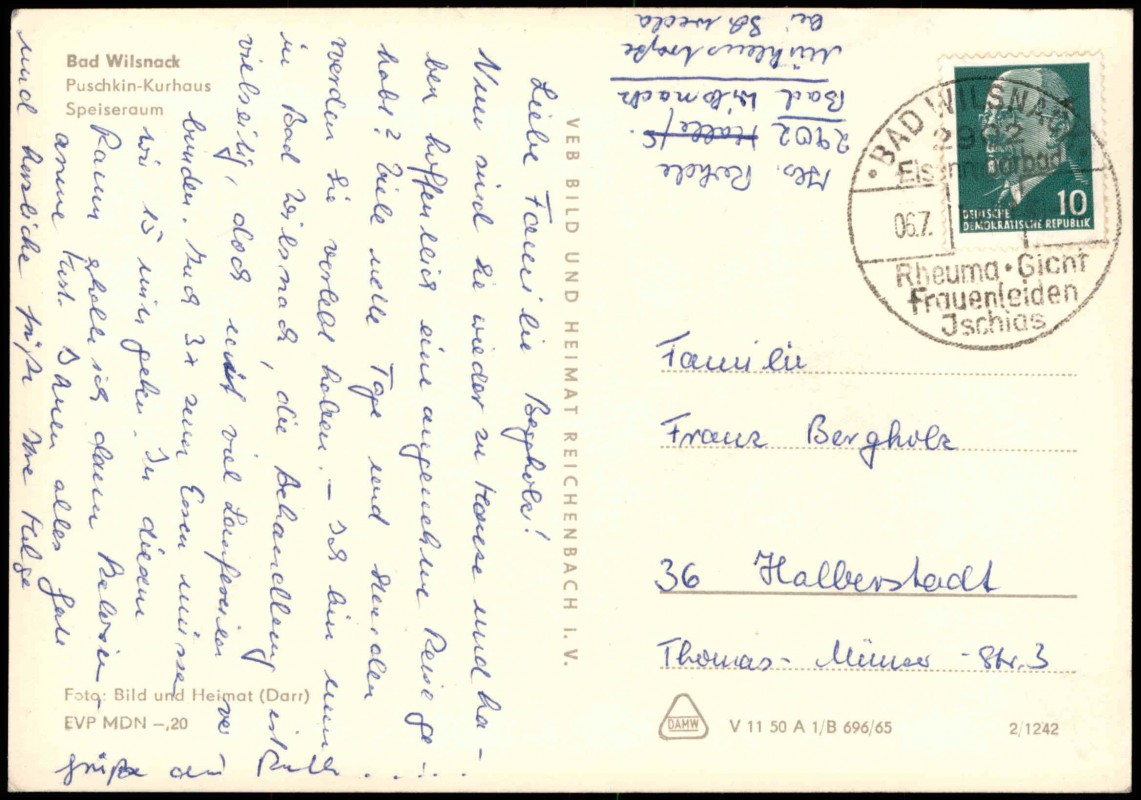 Bad Wilsnack
Puschkin-Kurhaus
Speiseraum
Liebe Familie Bergholz!
Nun sind Sie wieder zu Hause und ha-
ben hoffentlich eine angenehme Reise ge-
habt? Viele nette Tage und Stunden
werden Sie verlebt haben. – Ich bin nun
in Bad Wilsnack, die Behandlung ist
vielseitig, doch mit viel Laufereien ver-
bunden. Auch 3x zum Essen müssen
wir 15 min gehen. In diesem
Raum erhole ich dann
arme Ihnen alles Gute
und herzliche Grüße Ihre
Grüße an
Foto: Bild und Heimat (Darr)
EVP MDN –,20
VEB BILD UND HEIMAT REICHENBACH I. V.
Abs.
2902 Halle/S
Bad Wilsnack
bei
BAD WILSNACK
2902
Eisenmoorbad
06.7.
Rheuma · Gicht
Frauenleiden
Ischias
10
DEUTSCHE
DEMOKRATISCHE REPUBLIK
Familie
Franz Bergholz
36 Halberstadt
Thomas- Münzer -Str. 3
DAMW
V 11 50 A 1/B 696/65
2/1242